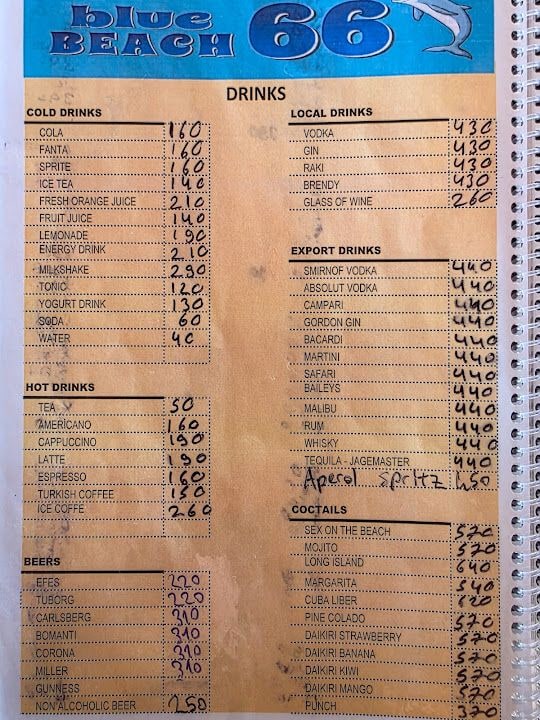 blue
BEACH 66
DRINKS
COLD DRINKS
COLA 160
FANTA 160
SPRITE 160
ICE TEA 140
FRESH ORANGE JUICE 210
FRUIT JUICE 140
LEMONADE 190
ENERGY DRINK 210
MILKSHAKE 290
TONIC 120
YOGURT DRINK 130
SODA 60
WATER 40
HOT DRINKS
TEA 50
AMERICANO 160
CAPPUCCINO 190
LATTE 190
ESPRESSO 160
TURKISH COFFEE 150
ICE COFFE 260
BEERS
EFES 220
TUBORG 220
CARLSBERG 310
BOMANTI 310
CORONA 310
MILLER 310
GUNNESS
NON ALCOHOLIC BEER 250
LOCAL DRINKS
VODKA 430
GIN 430
RAKI 430
BRENDY 430
GLASS OF WINE 260
EXPORT DRINKS
SMIRNOF VODKA 440
ABSOLUT VODKA 440
CAMPARI 440
GORDON GIN 440
BACARDI 440
MARTINI 440
SAFARI 440
BAILEYS 440
MALIBU 440
RUM 440
WHISKY 440
TEQUILA - JAGEMASTER 440
Aperol spritz
COCTAILS
SEX ON THE BEACH 570
MOJITO 570
LONG ISLAND 640
MARGARITA 540
CUBA LIBER
PINE COLADO 570
DAIKIRI STRAWBERRY 570
DAIKIRI BANANA 570
DAIKIRI KIWI 570
DAIKIRI MANGO 570
PUNCH